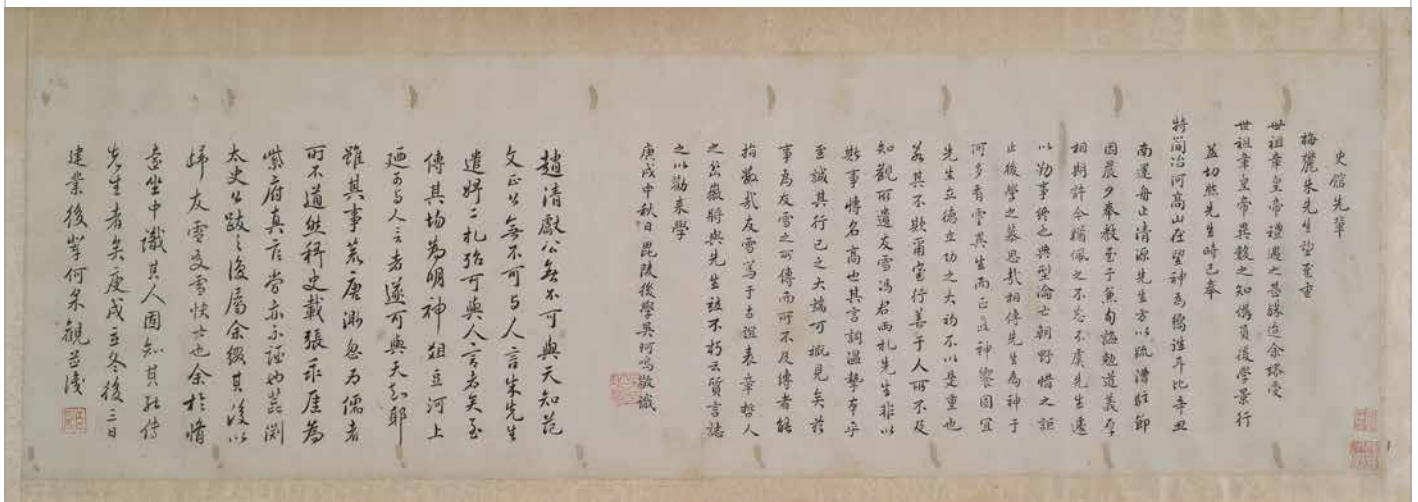 史館先輩
梅麓朱先生望至重
世祖章皇帝禮遇之甚餘造余
世祖章皇帝異數之知僞員後學景行
益切然先生時已奉
特簡治河高山在望神為嚮往耳比辛丑
南還舟止清源先生方以疏漕駐節
因晨夕奉教至于兼旬誨勉道義
相期許今猶佩之不忘不虞先生遽
以勤事終之典型淪亡朝野惜之詎
止後學之慕思哉相傳先生為神于
河多著靈異生而正直神饗固宜
先生立德立功之大初不以是重也
若其不欺爾室行善于人所不及
知觀所遺友雪馮君兩札先生非以
欺事博名高也其言詞溫摯本乎
至誠其行己之大端可概見矣茲
事為友雪之可傳而所不及傳者能
指數哉友雪篤于古誼表章哲人
之公嶽將與先生並不朽云質言誌
之以勸來學
庚戌中秋日毘陵後學吳珂鳴敬識
趙清獻公無不可與天知范
文正公無不可与人言朱先生
遺婿二札殆可與人言者矣至
傳其均為明神俎豆河上
廼不可与人言者遂可與天知耶
雖其事荒唐渺忽為儒者
所不道然稗史載張乖崖為
紫府真官嘗亦不誣也茲渕
太史公跋之後屬余綴其後以
歸友雪友雪快士也余於惰
臺坐中識其人固知其能傳
先生者矣庚戌立冬後三日
建業後學何采觀並識